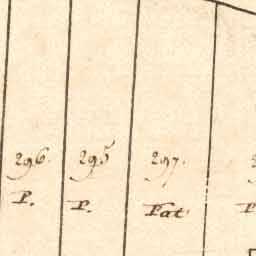 296.
P.
295
P.
297.
Pat
P